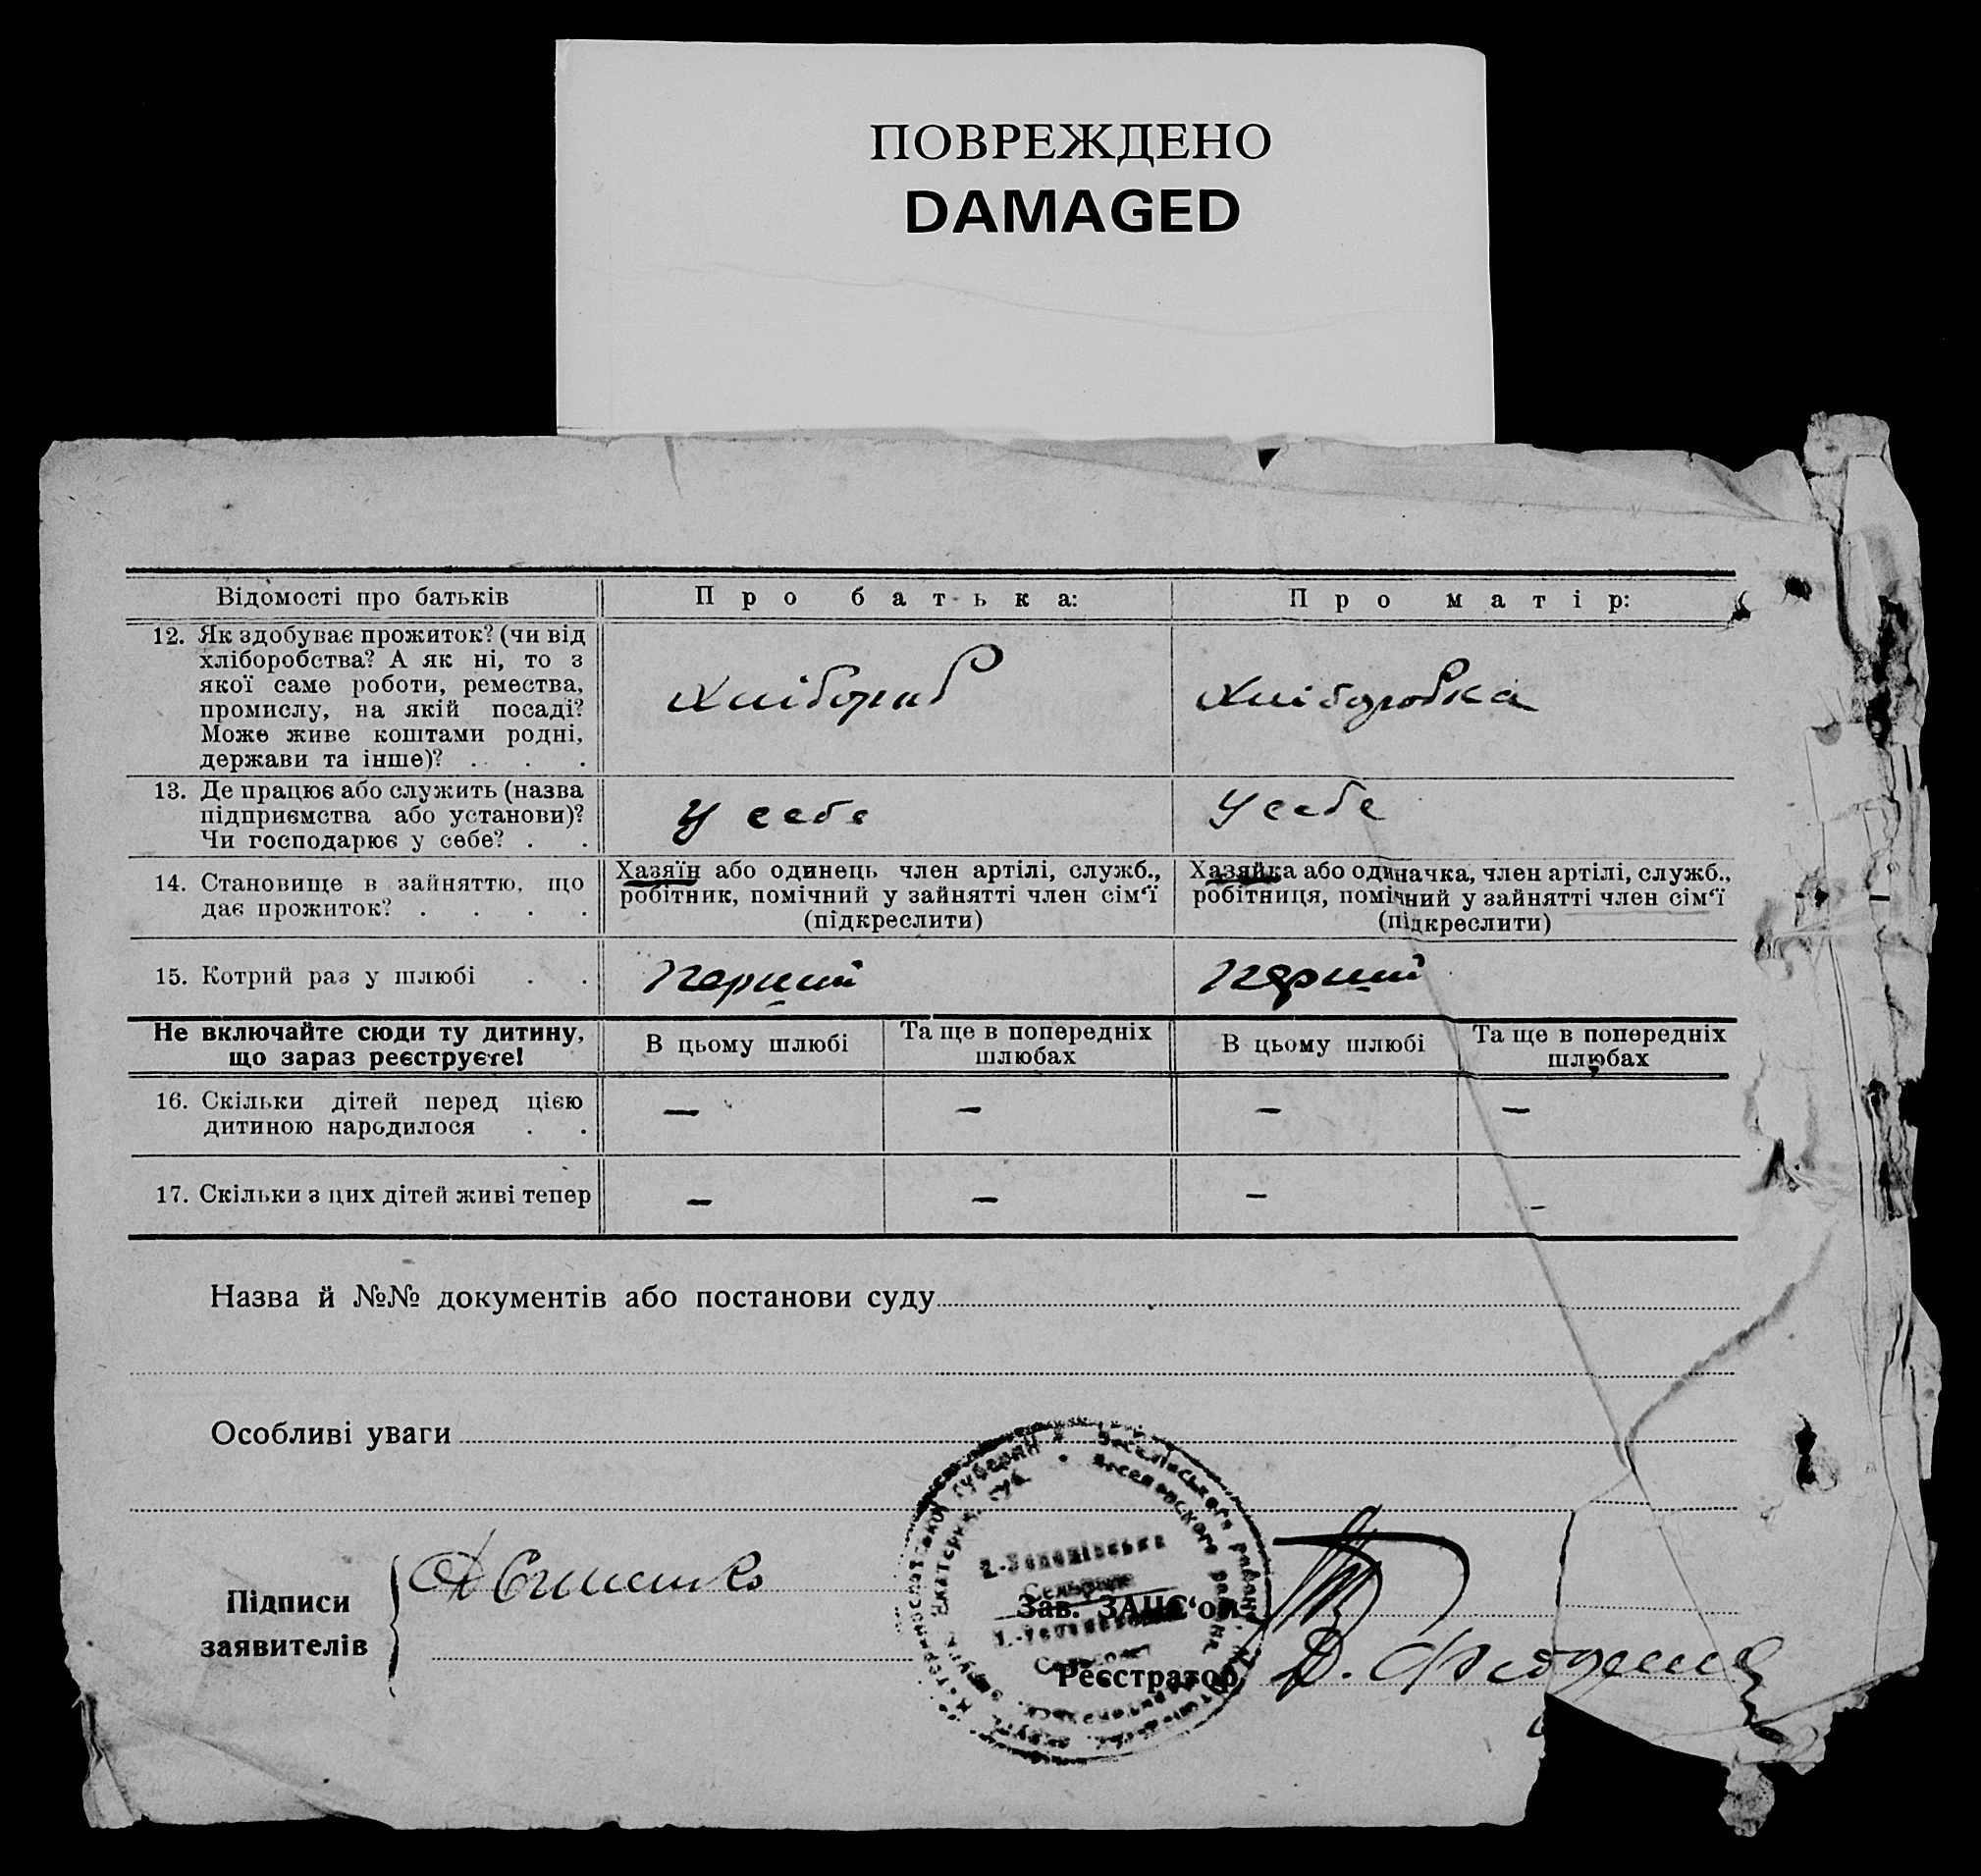 ПОВРЕЖДЕНО
DAMAGED
Відомості про батьків
Про батька:
Про матір:
12. Як здобуває прожиток? (чи від
хліборобства? А як ні, то з
якої саме роботи, ремества,
промислу, на якій посаді?
Може живе коштами родні,
держави та інше)? . . .
Хлібороб
Хліборобка
13. Де працює або служить (назва
підприємства або установи)?
Чи господарює у себе? . .
У себе
У себе
14. Становище в зайняттю, що
дає прожиток? . . . .
Хазяїн або одинець член артілі, служб.,
робітник, помічний у зайнятті член сім‘ї
(підкреслити)
Хазяйка або одиначка, член артілі, служб.,
робітниця, помічний у зайнятті член сім‘ї
(підкреслити)
15. Котрий раз у шлюбі . .
Перший
Перший
Не включайте сюди ту дитину,
що зараз реєструєте!
В цьому шлюбі
Та ще в попередніх
шлюбах
В цьому шлюбі
Та ще в попередніх
шлюбах
16. Скільки дітей перед цією
дитиною народилося . .
— — — —
17. Скільки з цих дітей живі тепер
— — — —
Назва й №№ документів або постанови суду
Особливі уваги
Підписи
заявителів
Зав. ЗАЦС‘ом
Реєстратор